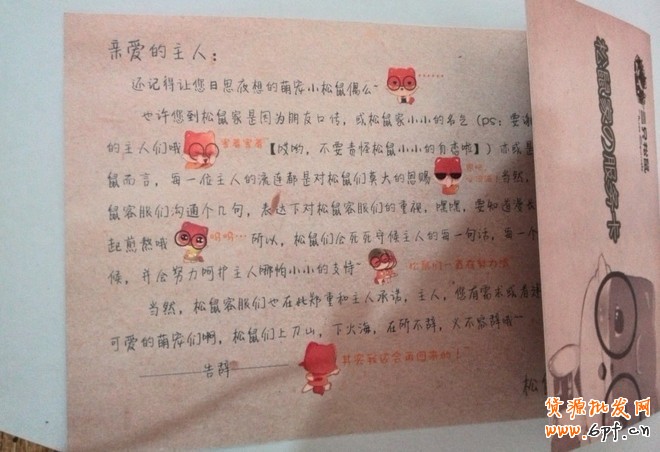 亲爱的主人：
还记得让您日思夜想的萌宠小松鼠偶么~
......
也许您到松鼠家是因为朋友口传，或松鼠家小小的名气（PS：要谢
的主人们哦
害羞害羞
【哎哟，不要责怪松鼠小小的自恋啦】亦或是
鼠而言，每一位主人的流连都是对松鼠们莫大的恩赐
当然，
鼠客服们沟通个几句，表达下对松鼠客服们的重视，嘿嘿，要知道漫长
起煎熬哦
呜呜…
所以，松鼠们会死死守候主人的每一句话，每一个
候，并会努力呵护主人哪怕小小的支持~
松鼠们一直在努力哦
当然，松鼠客服们也在此郑重和主人承诺，主人，您有需求或者
可爱的萌宠们啊，松鼠们上刀山，下火海，在所不辞，义不容辞哦~
——告辞——
其实我还会再回来的！
松
松鼠家の服务卡
货源批发网
www.6pf.cn